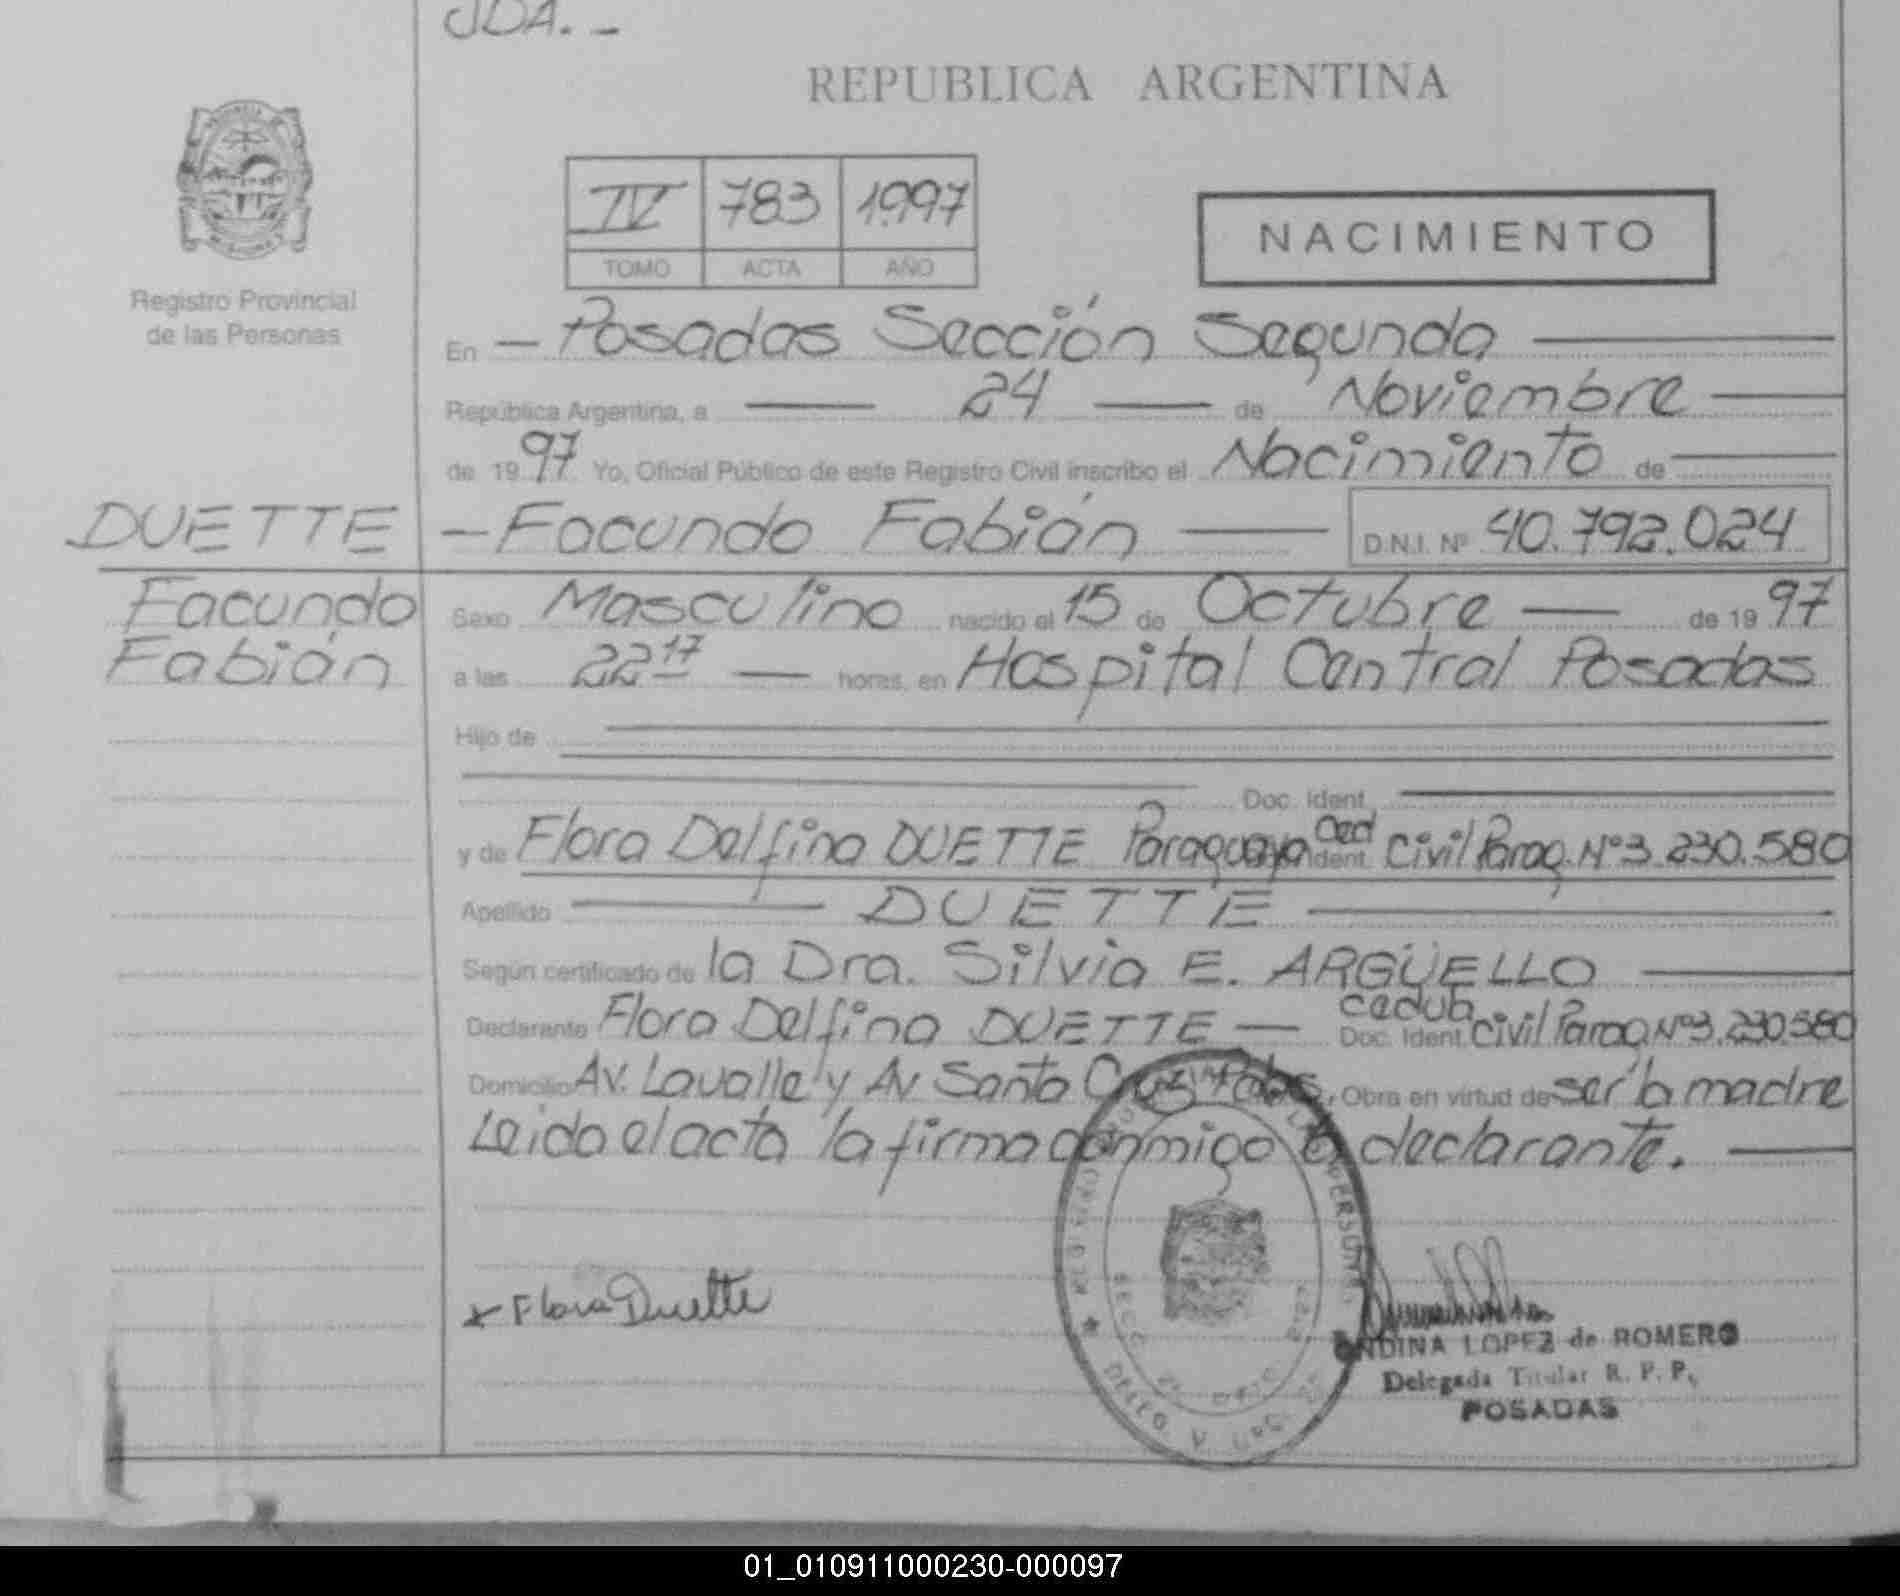 JDA.-
REPUBLICA ARGENTINA
IV 783 1997
TOMO ACTA AÑO
NACIMIENTO
Registro Provincial
de las Personas
En — Posadas Sección Segunda —
República Argentina, a — 24 — de Noviembre —
de 1997 Yo, Oficial Público de este Registro Civil inscribo el Nacimiento de —
DUETTE — Facundo Fabián — D.N.I. Nº 40.792.024
Facundo
Fabián
Sexo Masculino nacido el 15 de Octubre — de 1997
a las 22 17 — horas, en Hospital Central Posadas
Hijo de
Doc. Ident.
y de Flora Delfina DUETTE Paraguaya Ced Ident. Civil Parag. Nº 3.230.580
Apellido — DUETTE —
Según certificado de la Dra. Silvia E. ARGÜELLO —
Declarante Flora Delfina DUETTE — Doc. Ident. cedula Civil Parag Nº 3.230.580
Domicilio Av. Lavalle y Av Santa Cruz Pdas, Obra en virtud de ser la madre
Leida el acta la firma conmigo la declarante. —
x Flora Duette
ONDINA LOPEZ de ROMERO
Delegada Titular R. P. P.
POSADAS
01_010911000230-000097